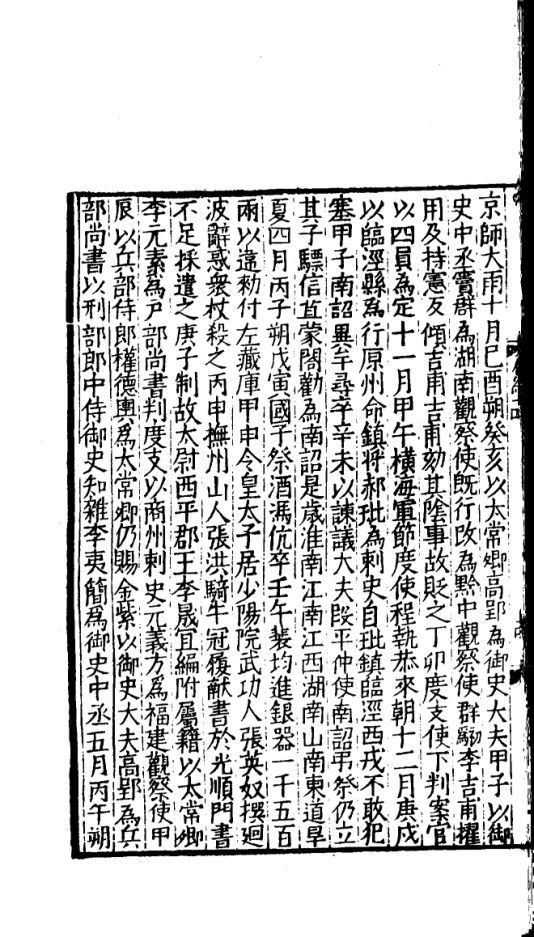 京師大雨十月己酉朔癸亥以太常卿高郢為御史大夫甲子以御
史中丞竇群為湖南觀察使既行改為黔中觀察使群劾李吉甫擢
用及持憲反傾吉甫吉甫劾其陰事故貶之丁卯度支使下判案官
以四員為定十一月甲午橫海軍節度使程執恭來朝十二月庚戌
以臨涇縣為行原州命鎮將郝玼為刺史自玼鎮臨涇西戎不敢犯
塞甲子南詔異牟尋卒辛未以諫議大夫段平仲使南詔弔祭仍立
其子驃信苴蒙閤勸為南詔是歲淮南江南江西湖南山南東道旱
夏四月丙子朔戊寅國子祭酒馮伉卒壬午裴均進銀器一千五百
兩以違勑付左藏庫甲申令皇太子居少陽院武功人張英奴撰迴
波辭惑衆杖殺之丙申撫州山人張洪騎牛冠履献書於光順門書
不足採遣之庚子制故太尉西平郡王李晟宜編附屬籍以太常卿
李元素為戶部尚書判度支以商州刺史元義方為福建觀察使甲
辰以兵部侍郎權德輿為太常卿仍賜金紫以御史大夫高郢為兵
部尚書以刑部郎中侍御史知雜李夷簡為御史中丞五月丙午朔